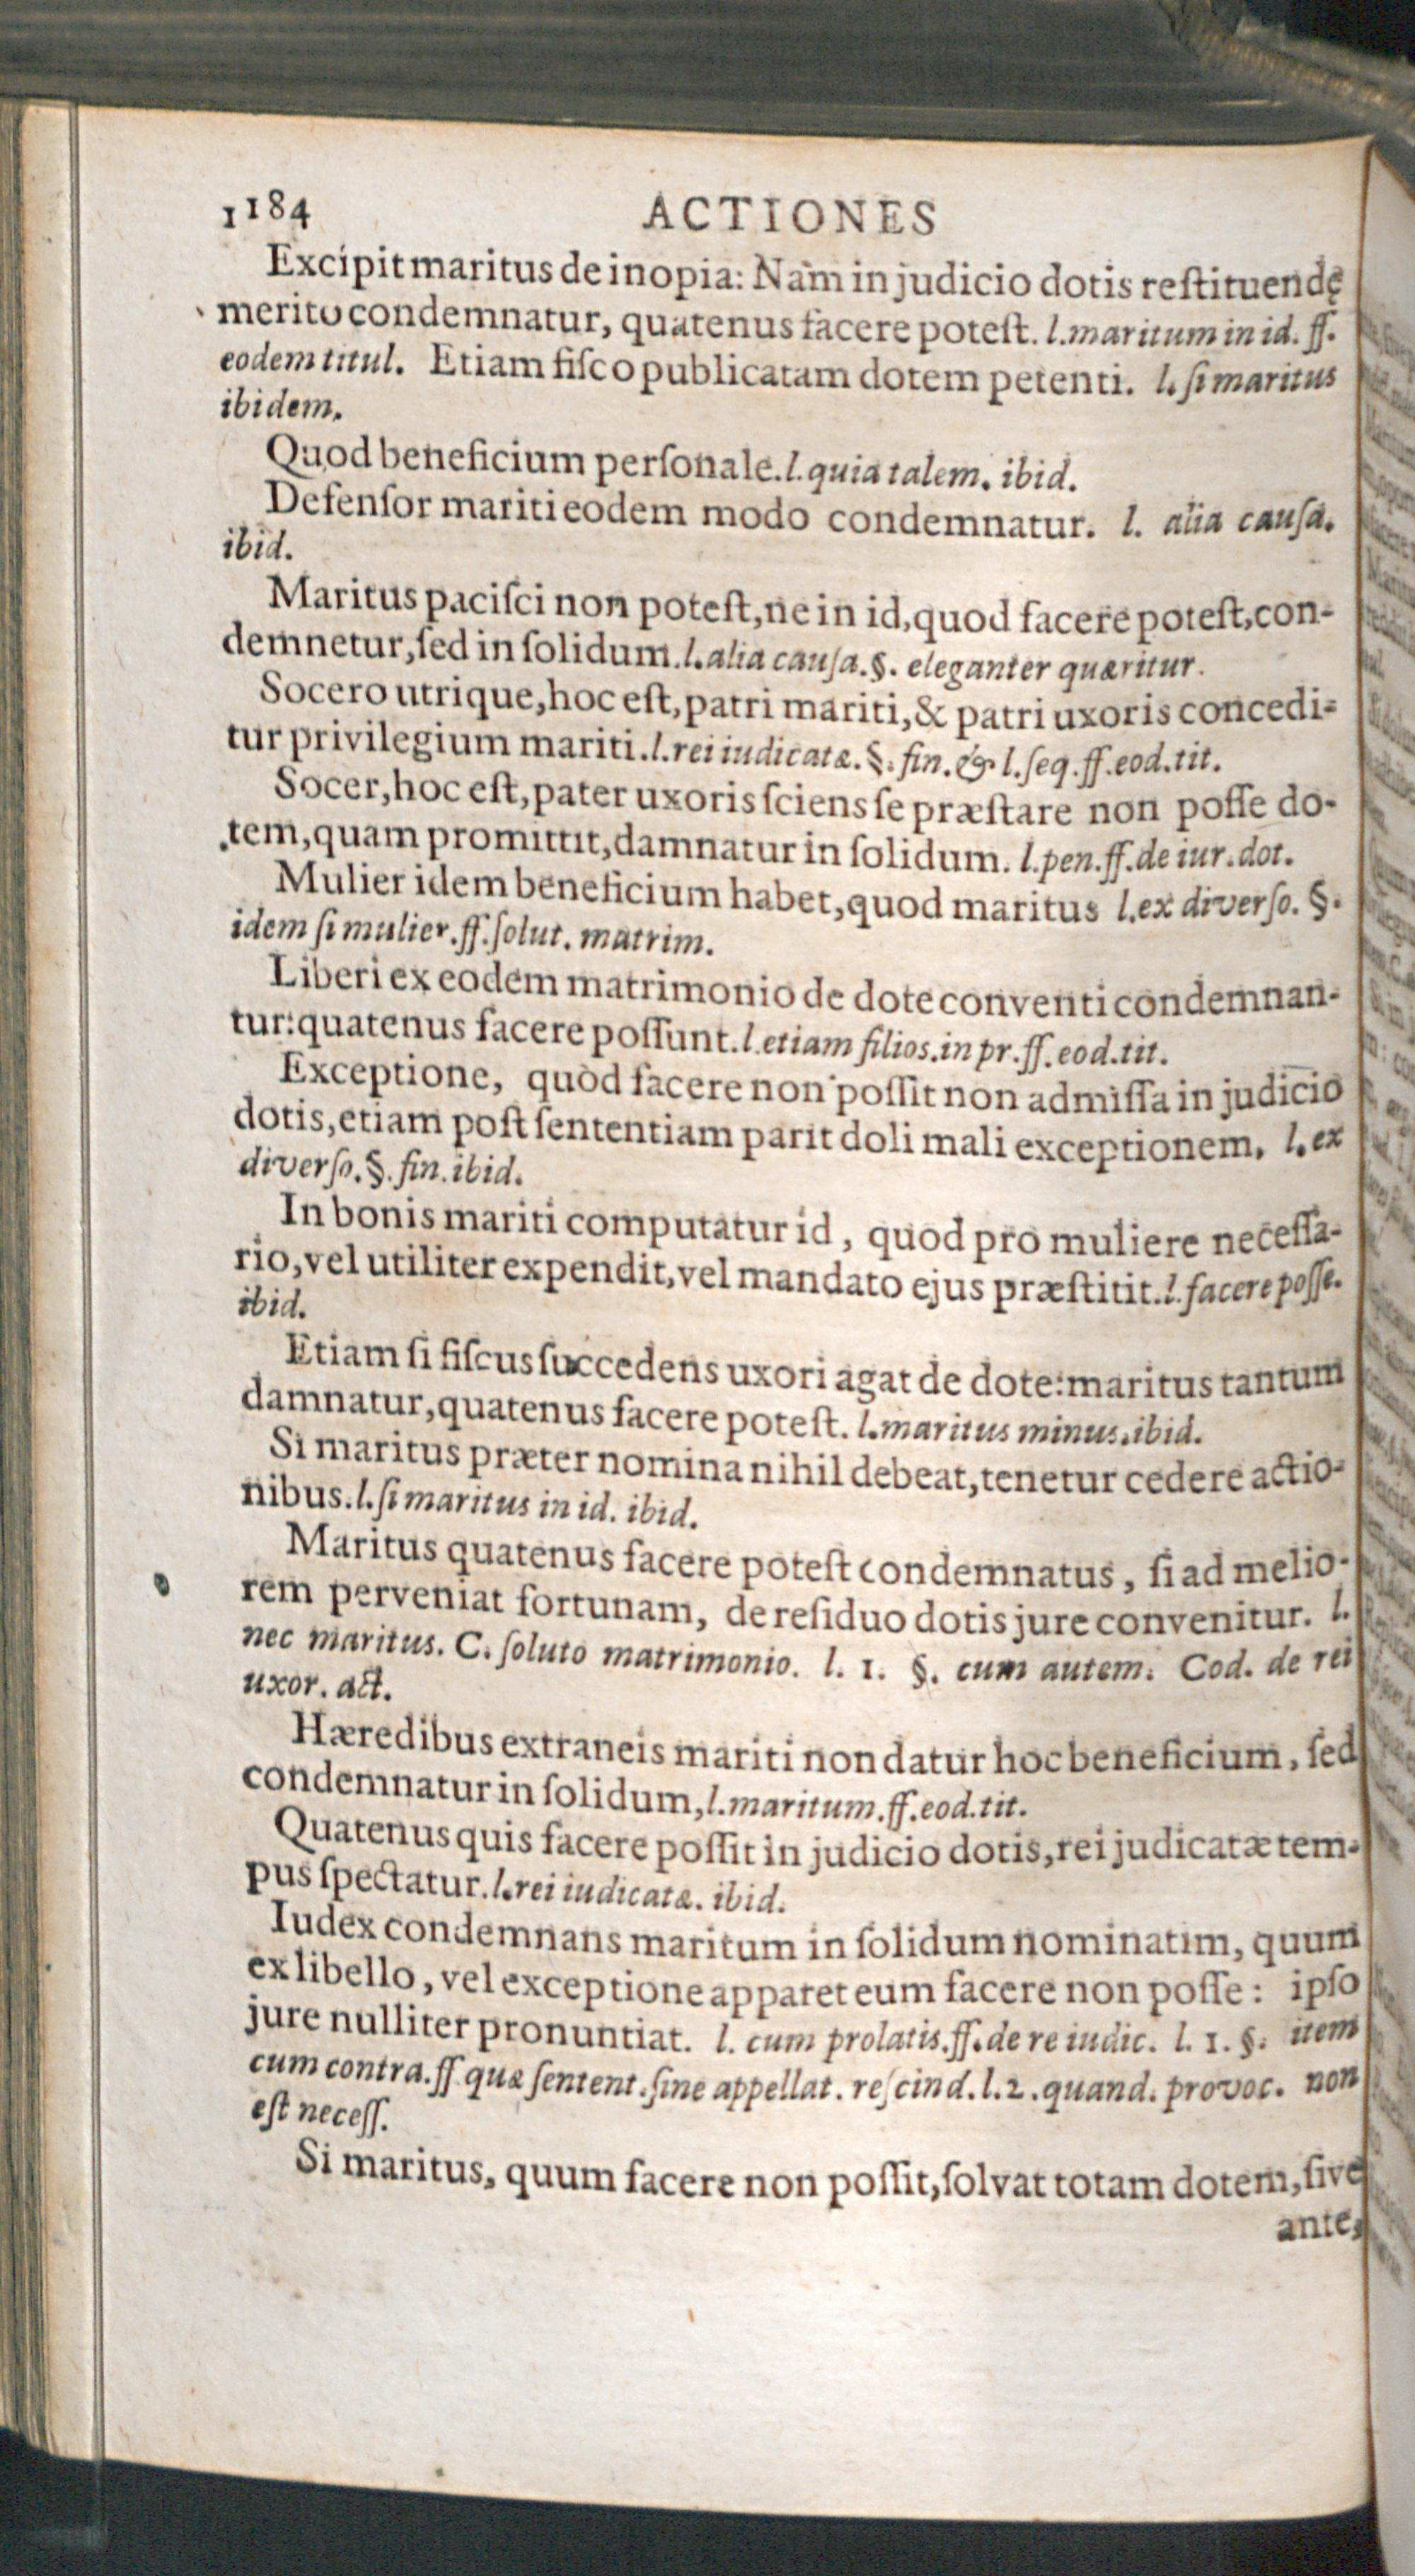 1184 ACTIONES
Excipit maritus de inopia: Nam in judicio dotis reſtituendę
merito condemnatur, quatenus facere poteſt. l. maritum in id. ff.
eodem titul. Etiam fiſco publicatam dotem petenti. l. ſi maritus
ibidem.
Quod beneficium perſonale. l. quia talem. ibid.
Defenſor mariti eodem modo condemnatur. l. alia cauſa.
ibid.
Maritus paciſci non poteſt, ne in id, quod facere poteſt, con-
demnetur, ſed in ſolidum. l. alia cauſa. §. eleganter quæritur.
Socero utrique, hoc eſt, patri mariti, & patri uxoris concedi-
tur privilegium mariti. l. rei iudicatæ. §. fin. & l. ſeq. ff. eod. tit.
Socer, hoc eſt, pater uxoris ſciens ſe præſtare non poſſe do-
tem, quam promittit, damnatur in ſolidum. l. pen. ff. de iur. dot.
Mulier idem beneficium habet, quod maritus l. ex diverſo. §.
idem ſi mulier. ff. ſolut. matrim.
Liberi ex eodem matrimonio de dote conventi condemnan-
tur: quatenus facere poſſunt. l. etiam filios. in pr. ff. eod. tit.
Exceptione, quòd facere non poſſit non admiſſa in judicio
dotis, etiam poſt ſententiam parit doli mali exceptionem. l. ex
diverſo. §. fin. ibid.
In bonis mariti computatur id, quod pro muliere neceſſa-
rio, vel utiliter expendit, vel mandato ejus præſtitit. l. facere poſſe.
ibid.
Etiam ſi fiſcus ſuccedens uxori agat de dote: maritus tantum
damnatur, quatenus facere poteſt. l. maritus minus. ibid.
Si maritus præter nomina nihil debeat, tenetur cedere actio-
nibus. l. ſi maritus in id. ibid.
Maritus quatenus facere poteſt condemnatus, ſi ad melio-
rem perveniat fortunam, de reſiduo dotis jure convenitur. l.
nec maritus. C. ſoluto matrimonio. l. 1. §. cum autem. Cod. de rei
uxor. act.
Hæredibus extraneis mariti non datur hoc beneficium, ſed
condemnatur in ſolidum, l. maritum. ff. eod. tit.
Quatenus quis facere poſſit in judicio dotis, rei judicatæ tem-
pus ſpectatur. l. rei iudicatæ. ibid.
Iudex condemnans maritum in ſolidum nominatim, quum
ex libello, vel exceptione apparet eum facere non poſſe: ipſo
jure nulliter pronuntiat. l. cum prolatis. ff. de re iudic. l. 1. §. item
cum contra. ff quæ ſentent. ſine appellat. reſcind. l. 2. quand. provoc. non
eſt neceſſ.
Si maritus, quum facere non poſſit, ſolvat totam dotem, ſive
ante,